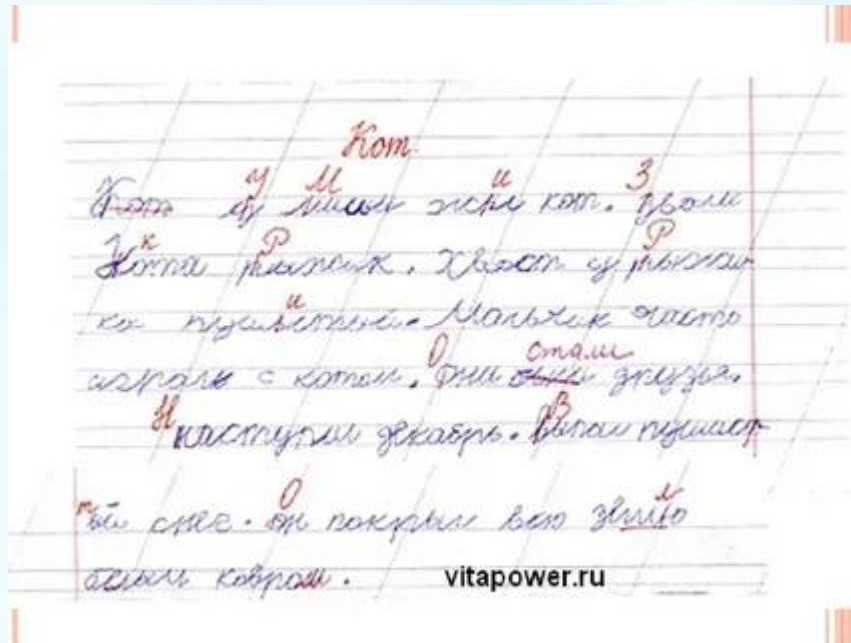 Кот.
у миши жил кот. звали
Кота рыжик. Хвост у рыжи-
ка пушистый. Мальчик часто
играль с котом. они стали друзья.
наступил декабрь. выпал пушист
ый снег. он покрыл всю землю
белым ковром.
vitapower.ru